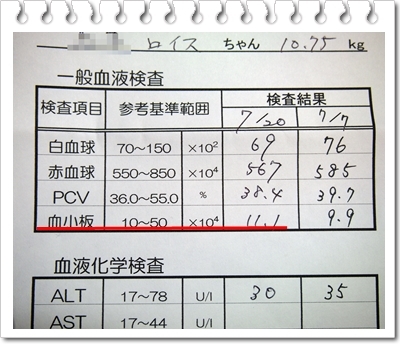 ロイス ちゃん 10.75 kg
一般血液検査
検査項目 参考基準範囲 検査結果
7/20 7/7
白血球 70～150 ×10² 69 76
赤血球 550～850 ×10⁴ 567 585
PCV 36.0～55.0 % 38.4 39.7
血小板 10～50 ×10⁴ 11.1 9.9
血液化学検査
ALT 17～78 U/l 30 35
AST 17～44 U/l